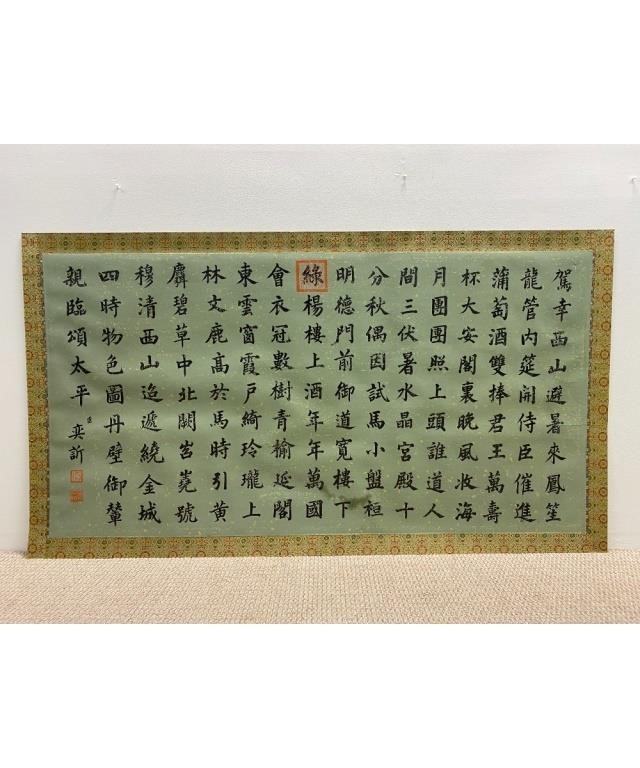 駕幸西山避暑來鳳笙
龍管内筵開侍臣催進
蒲萄酒雙捧君王萬壽
杯大安閣裏晚風收海
月團團照上頭誰道人
間三伏暑水晶宮殿十
分秋偶因試馬小盤桓
明德門前御道寬樓下
綠楊樓上酒年年萬國
會衣冠數樹青榆延閣
東雲窗霞戶綺玲瓏上
林文鹿高於馬時引黃
麛碧草中北闕岧嶤號
穆清西山迢遞繞金城
四時物色圖丹壁御輦
親臨頌太平 臣奕訢